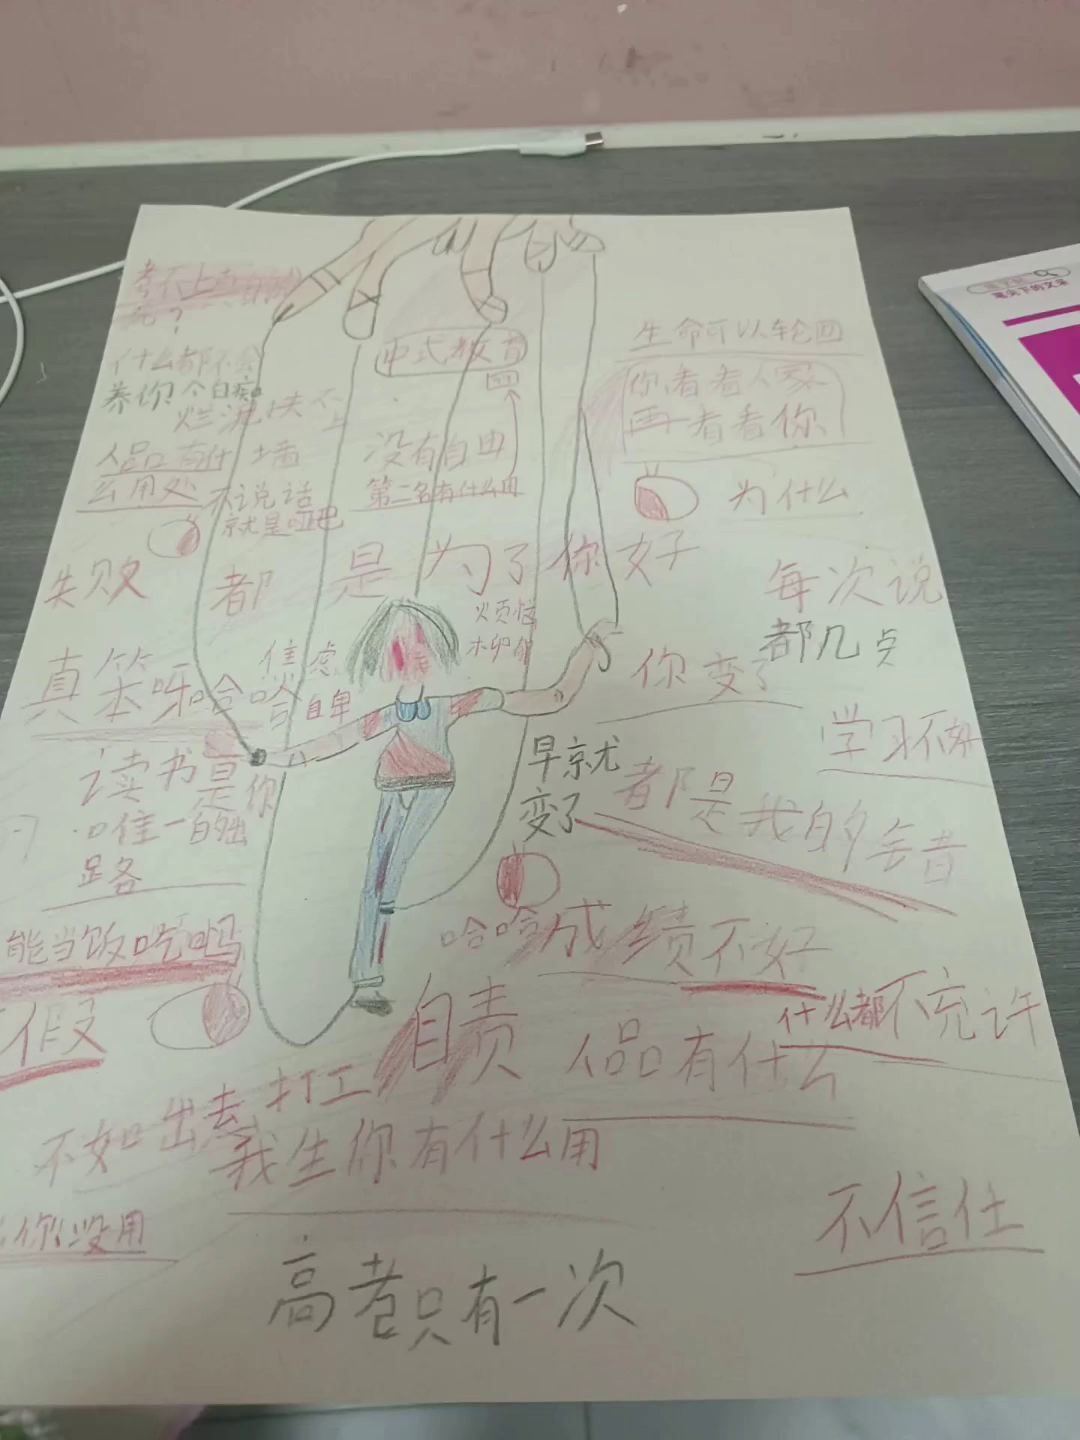 考不上
完？
什么都不会
养你个白痴
烂泥扶不上
墙
人品有什
么用处
不说话
就是哑巴
中式教育
没有自由
第二名有什么用
生命可以轮回
你看看人家
再看看你
为什么
失败
都是为了你好
每次说
都几点
烦恼
焦虑
自卑
真笨呀哈哈
你变了
早就
变了
学习不好
读书是你
唯一的出
路
都是我的
能当饭吃吗
哈哈
成绩不好
假
自责
什么都不允许
人品有什么
不如出去打工
我生你有什么用
你没用
不信任
高考只有一次
笔尖下的文采